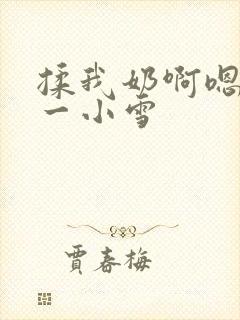 揉我奶啊嗯
一小雪
贾春梅